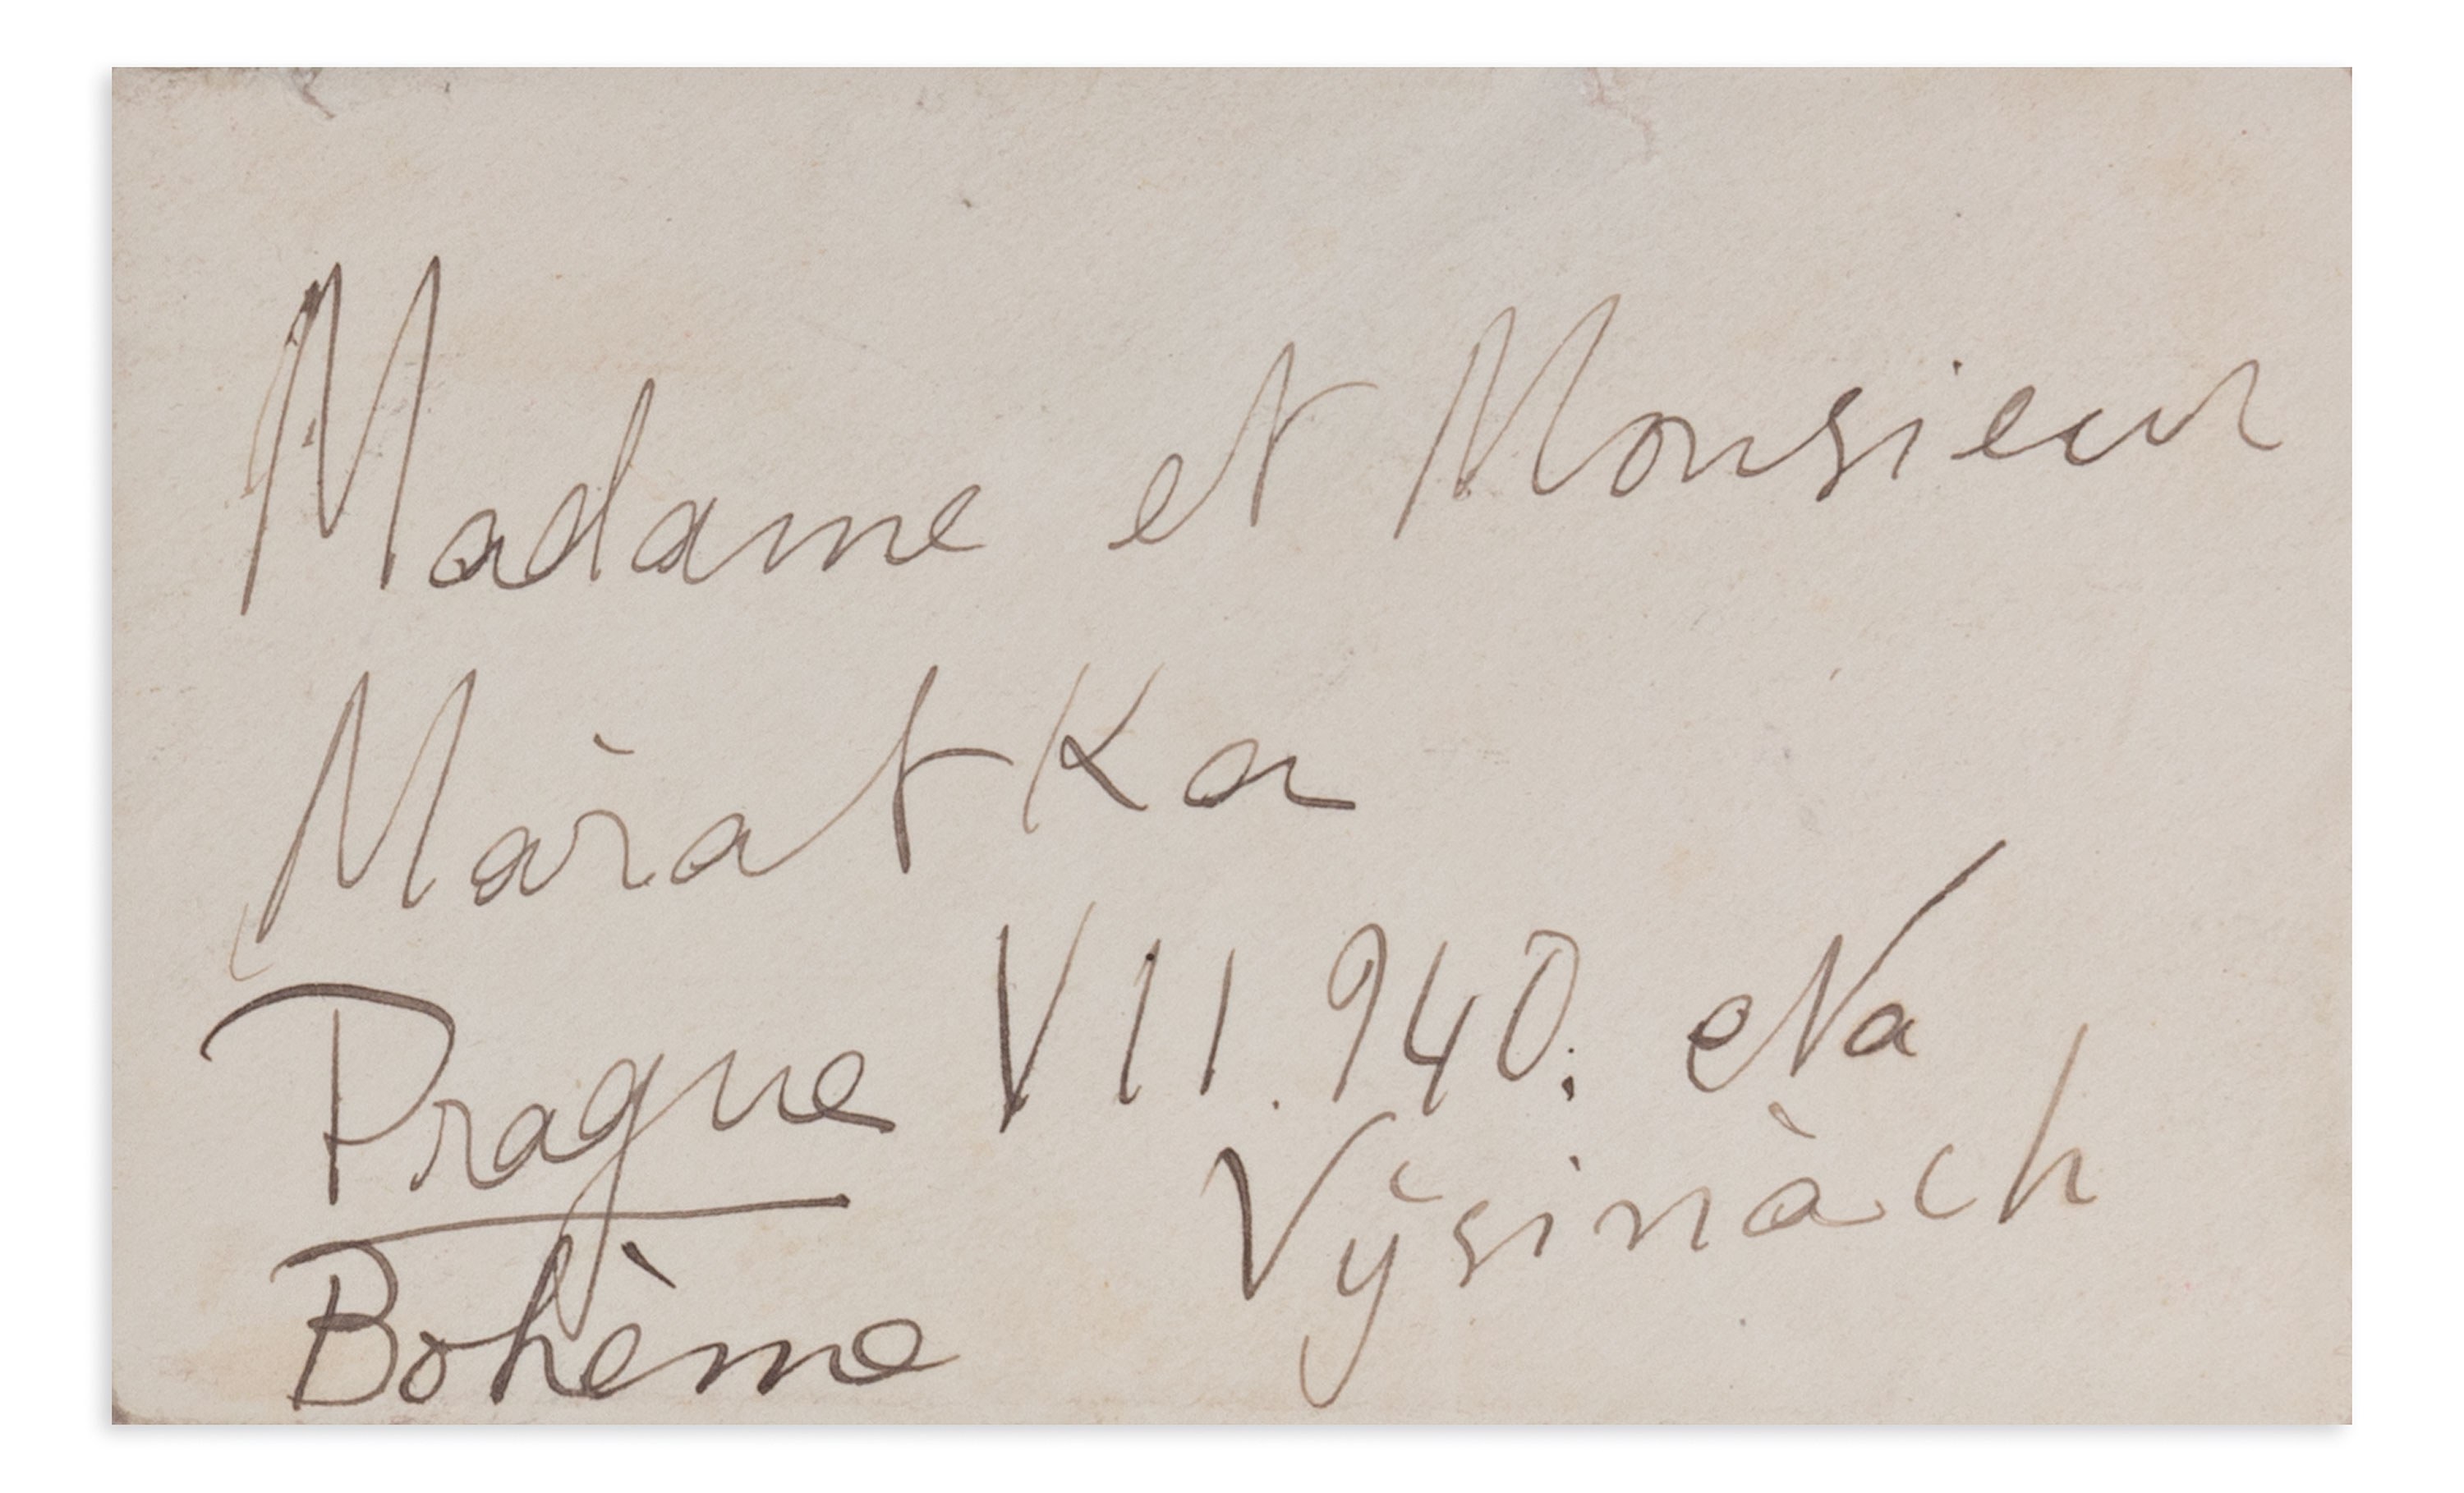 Madame et Monsieur
Màratka
Prague VII. 940. Na
Vyšinàch
Bohème